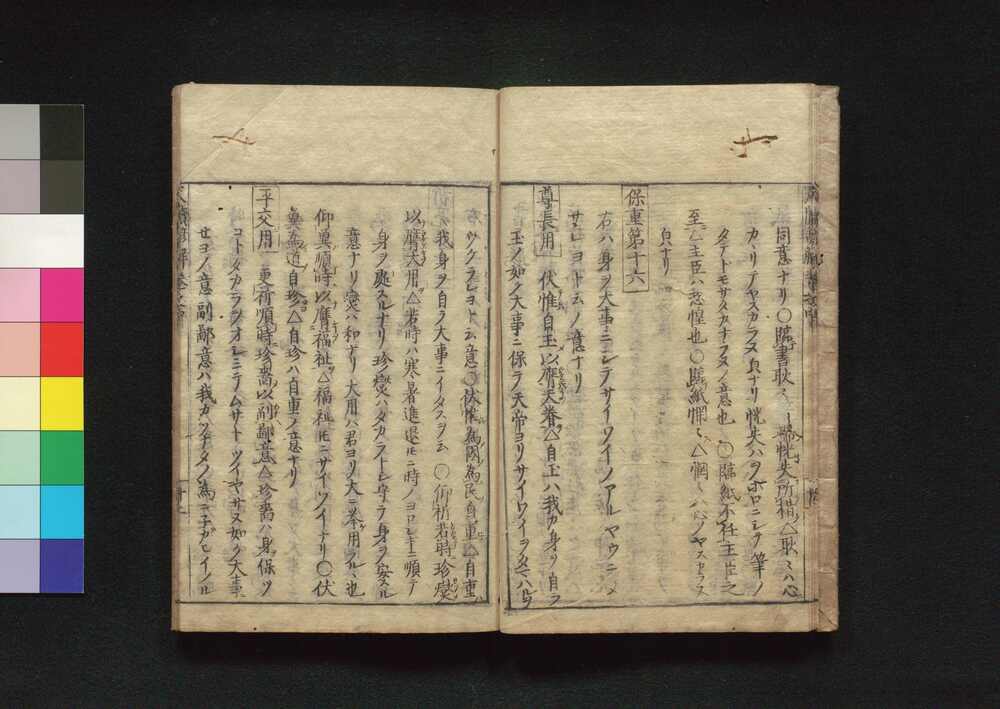 同意ナリ○臨書耿〻 恍失所措△耿〻ハ心
カヽリテヤスカラヌ皃ナリ恍失ハヲボロニシテ筆ノ
タテトモサタカナラヌノ意也○臨紙不任主臣之
至△主臣ハ恐惶也○臨紙惘〻△惘〻ハ心ノヤスカラヌ
皃ナリ
保重第十六
右ハ身ヲ大事ニシテサイワイノアルヤウニメ
サレヨト云ノ意ナリ
尊長用 伏惟自玉以膺天眷△自玉ハ我カ身ヲ自ラ
玉ノ如ク大事ニ保ラ天帝ヨリサイワイヲタマハル
ツクラレヨト云意○伏惟為國為民自重△自重
我身ヲ自ラ大事ニイタスヲ云○仰祈若時珍爕
以膺大用△若時ハ寒暑進退ニ時ノヨロシキニ順テ
身ヲ處スルナリ珍爕ハタカラトシ守ラ身ヲ安スル
意ナリ爕ハ和ナリ大用ハ君ヨリ大ニ挙用ラルヽ也
仰冀順時以膺福祉△福祉ニサイワイナリ○伏
冀為道自珍△自珍ハ自重ノ意ナリ
平交用 更祈順時珍嗇以副鄙意△珍嗇ハ身保ツ
コトタカラヲオシミテムサトツイヤサヌ如ク大事
セヨノ意副鄙意ハ我カソナタノ為ニ子ガヒイノル